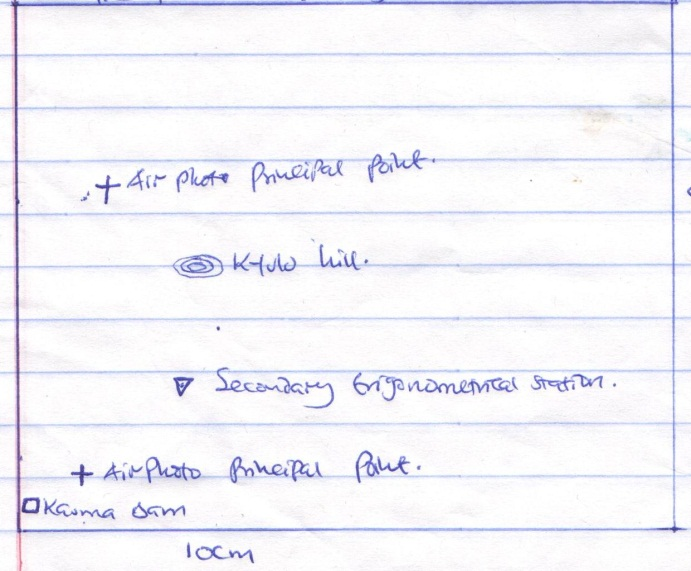 + Air photo Principal Point.
Kyulu hill.
Secondary trigonometrical station.
+ Air Photo Principal Point.
Kauma Dam
10cm